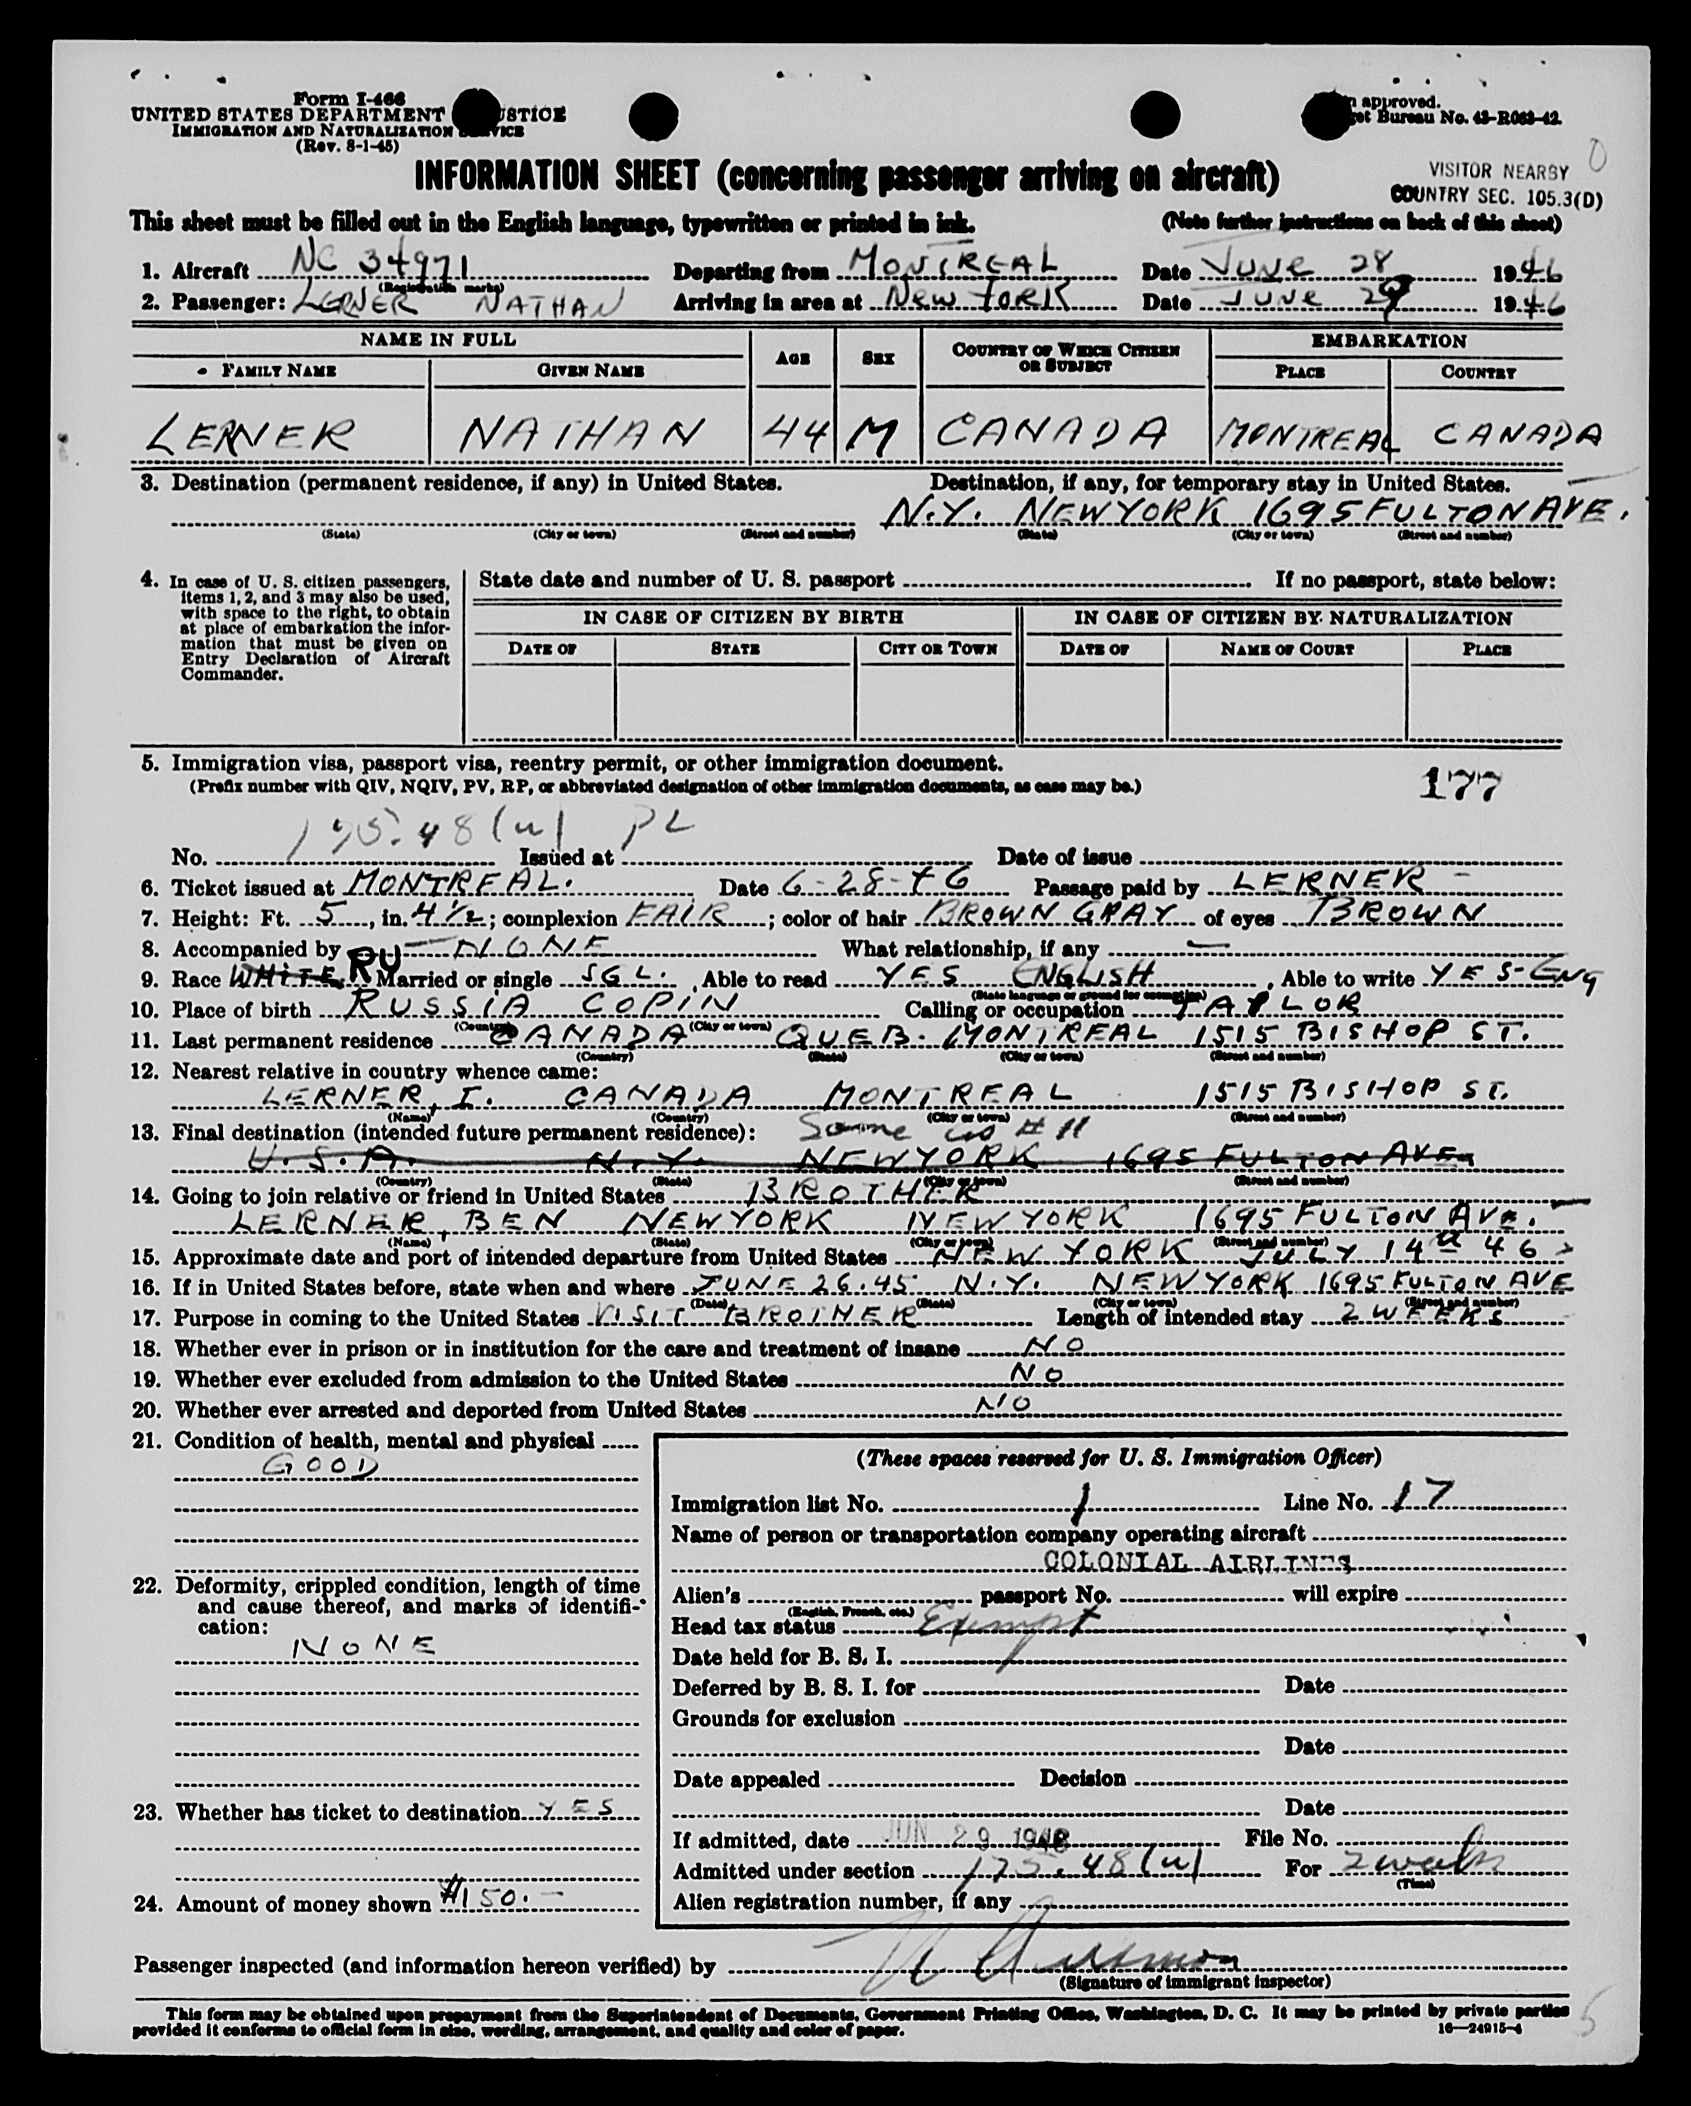 Form I-466
UNITED STATES DEPARTMENT JUSTICE
IMMIGRATION AND NATURALIZATION SERVICE
(Rev. 8-1-45)
approved.
Bureau No. 43-R063-42.
VISITOR NEARBY
COUNTRY SEC. 105.3(D)
INFORMATION SHEET (concerning passenger arriving on aircraft)
This sheet must be filled out in the English language, typewritten or printed in ink. (Note further instructions on back of this sheet)
1. Aircraft NC 34971 Departing from MONTREAL Date JUNE 28 1946
(Registration marks)
2. Passenger: LERNER NATHAN Arriving in area at NEW YORK Date JUNE 29 1946
NAME IN FULL AGE SEX COUNTRY OF WHICH CITIZEN OR SUBJECT EMBARKATION
FAMILY NAME GIVEN NAME PLACE COUNTRY
LERNER NATHAN 44 M CANADA MONTREAL CANADA
3. Destination (permanent residence, if any) in United States. Destination, if any, for temporary stay in United States.
N.Y. NEW YORK 1695 FULTON AVE.
(State) (City or town) (Street and number) (State) (City or town) (Street and number)
4. In case of U. S. citizen passengers, items 1, 2, and 3 may also be used, with space to the right, to obtain at place of embarkation the information that must be given on Entry Declaration of Aircraft Commander.
State date and number of U. S. passport If no passport, state below:
IN CASE OF CITIZEN BY BIRTH IN CASE OF CITIZEN BY NATURALIZATION
DATE OF STATE CITY OR TOWN DATE OF NAME OF COURT PLACE
5. Immigration visa, passport visa, reentry permit, or other immigration document.
(Prefix number with QIV, NQIV, PV, RP, or abbreviated designation of other immigration documents, as case may be.)
177
175.48(u) PL
No. Issued at Date of issue
6. Ticket issued at MONTREAL. Date 6-28-46 Passage paid by LERNER -
7. Height: Ft. 5, in. 4 1/2; complexion FAIR; color of hair BROWN GRAY of eyes BROWN
8. Accompanied by - NONE What relationship, if any -
9. Race WHITE RU Married or single SGL. Able to read YES ENGLISH, Able to write YES-ENG
(State language or ground for exemption)
10. Place of birth RUSSIA COPIN Calling or occupation TAYLOR
(Country) (City or town)
11. Last permanent residence CANADA QUEB. MONTREAL 1515 BISHOP ST.
(Country) (State) (City or town) (Street and number)
12. Nearest relative in country whence came:
LERNER, I. CANADA MONTREAL 1515 BISHOP ST.
(Name) (Country) (City or town) (Street and number)
13. Final destination (intended future permanent residence): Same as #11
U.S.A. N.Y. NEW YORK 1695 FULTON AVE.
(Country) (State) (City or town) (Street and number)
14. Going to join relative or friend in United States BROTHER
LERNER, BEN NEW YORK NEW YORK 1695 FULTON AVE.
(Name) (State) (City or town) (Street and number)
15. Approximate date and port of intended departure from United States NEW YORK JULY 14th 46
16. If in United States before, state when and where JUNE 26.45 N.Y. NEW YORK 1695 FULTON AVE
(Date) (State) (City or town) (Street and number)
17. Purpose in coming to the United States VISIT BROTHER Length of intended stay 2 WEEKS
18. Whether ever in prison or in institution for the care and treatment of insane NO
19. Whether ever excluded from admission to the United States NO
20. Whether ever arrested and deported from United States NO
21. Condition of health, mental and physical
GOOD
22. Deformity, crippled condition, length of time
and cause thereof, and marks of identification:
NONE
23. Whether has ticket to destination YES
24. Amount of money shown $150.-
(These spaces reserved for U. S. Immigration Officer)
Immigration list No. 1 Line No. 17
Name of person or transportation company operating aircraft
COLONIAL AIRLINES
Alien's passport No. will expire
(English, French, etc.)
Head tax status Exempt
Date held for B. S. I.
Deferred by B. S. I. for Date
Grounds for exclusion
Date
Date appealed Decision
Date
If admitted, date JUN 29 1946 File No.
Admitted under section 175.48(u) For 2 weeks
(Time)
Alien registration number, if any
Passenger inspected (and information hereon verified) by
(Signature of immigrant inspector)
This form may be obtained upon prepayment from the Superintendent of Documents, Government Printing Office, Washington, D. C. It may be printed by private parties
provided it conforms to official form in size, wording, arrangement, and quality and color of paper.
16—24915-4